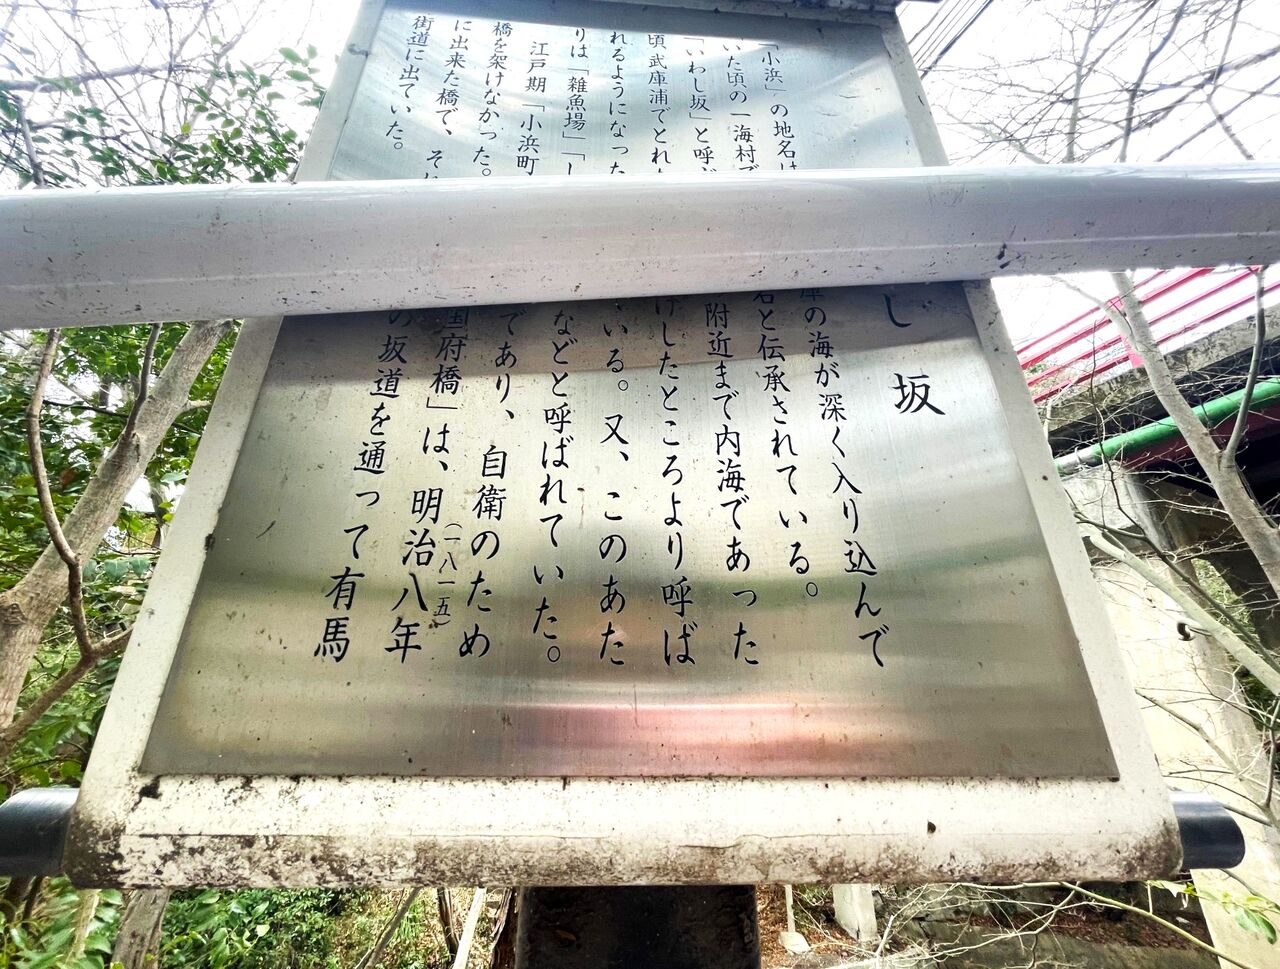 し坂
「小浜」の地名は 庫の海が深く入り込んで
いた頃の一海村で 名と伝承されている。
「いわし坂」と呼ば 附近まで内海であった
頃、武庫浦でとれ げしたところより呼ば
れるようになった いる。又、このあた
りは「雑魚場」「し などと呼ばれていた。
江戸期「小浜町 であり、自衛のため
橋を架けなかった。 国府橋」は、明治八年
(一八一五)
に出来た橋で、そ の坂道を通って有馬
街道に出ていた。